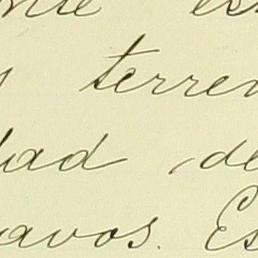 terren
dad de
avos. Es